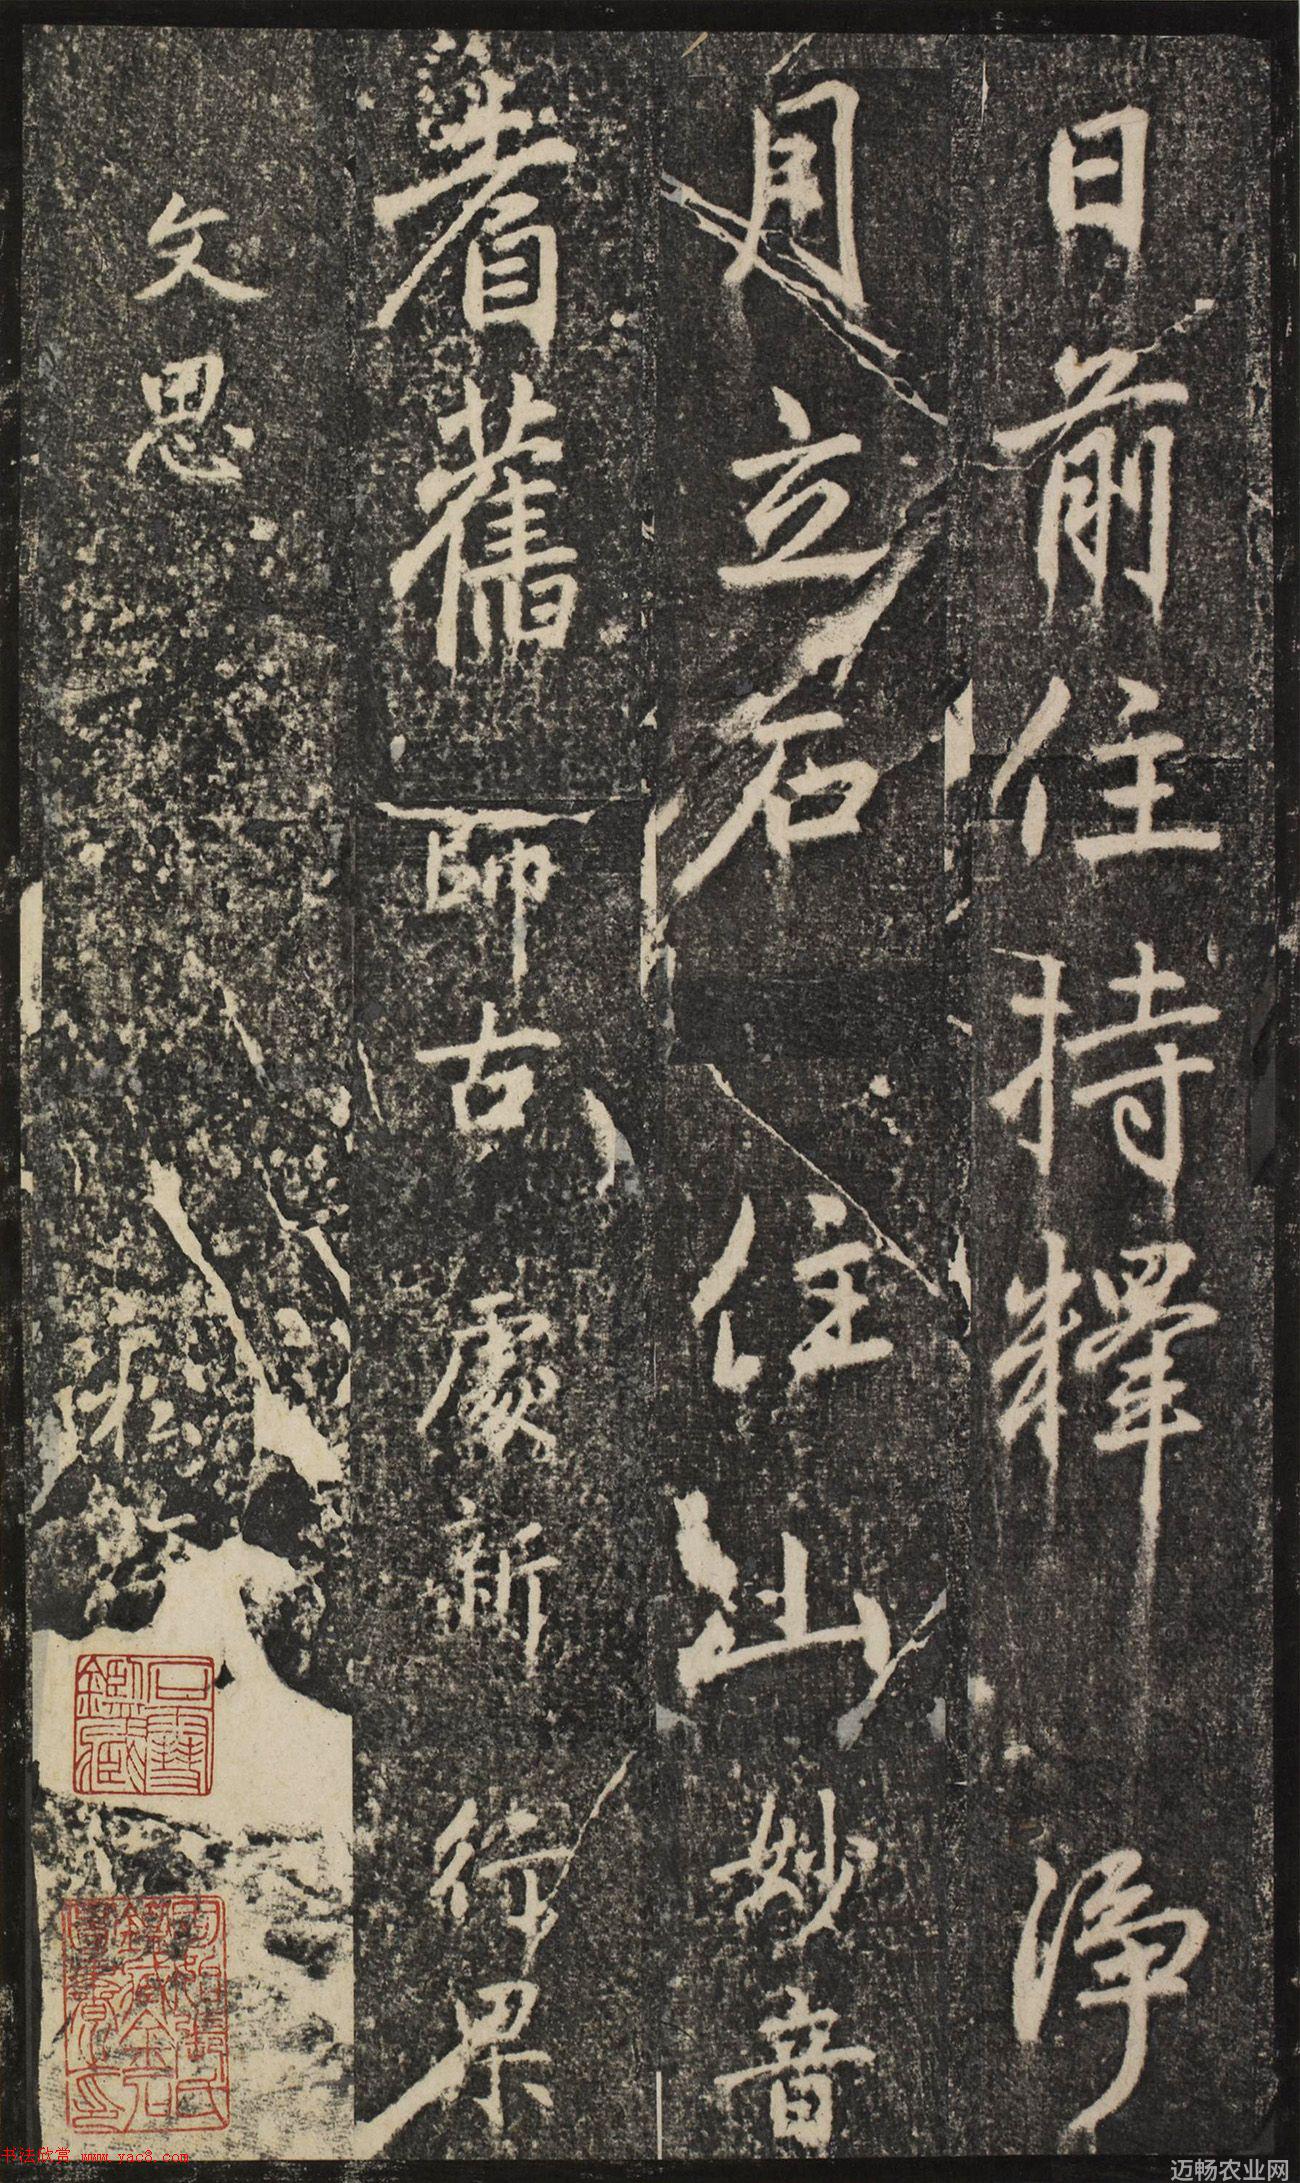 日前住持釋　淨
月立石　住山妙音
耆舊師古　處新　行果
文思
書法欣赏 www.yac8.com
迈畅农业网